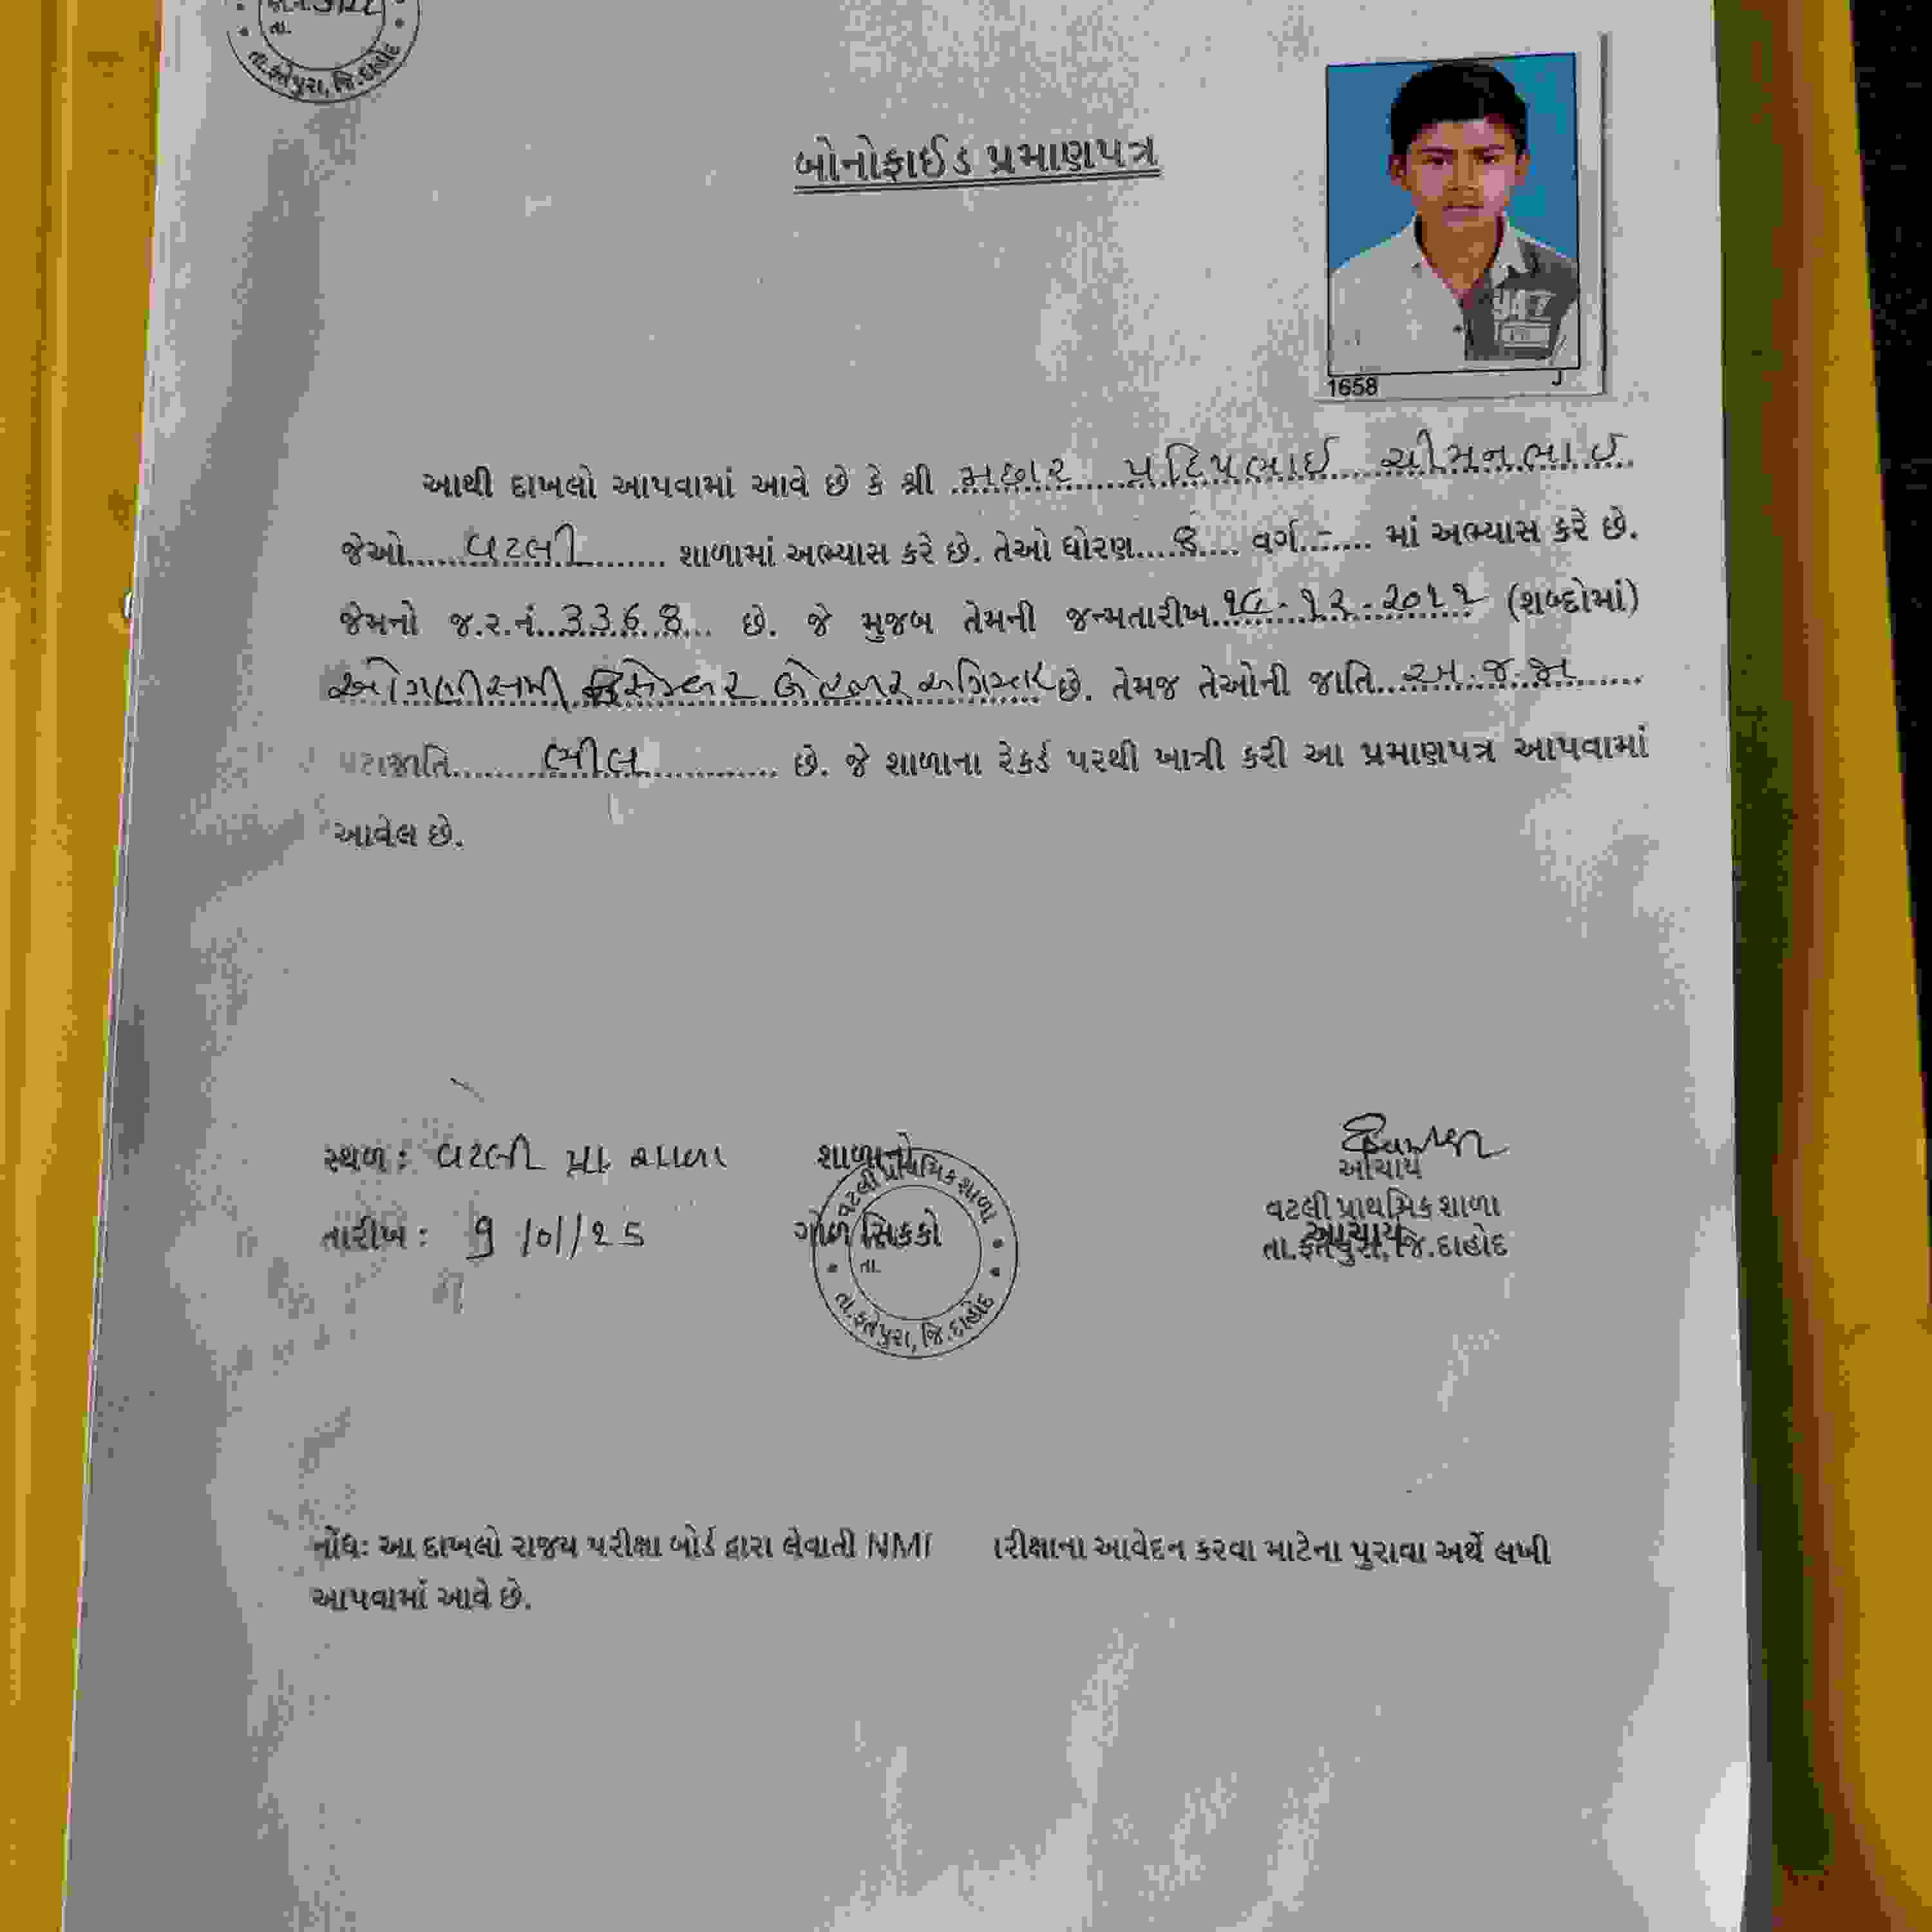 તા.
તા.ફતેપુરા, જિ.દાહોદ
બોનોફાઈડ પ્રમાણપત્ર
1658
J
આથી દાખલો આપવામાં આવે છે કે શ્રી મછાર પ્રદિપભાઈ ચીમનભાઈ
જેઓ.....વટલી........ શાળામાં અભ્યાસ કરે છે. તેઓ ધોરણ....8.... વર્ગ...-.... માં અભ્યાસ કરે છે.
જેમનો જ.ર.નં..3368... છે. જે મુજબ તેમની જન્મતારીખ..૧૯.૧૨.૨૦૧૧ (શબ્દોમાં)
ઓગણીસમી ડિસેમ્બર બે હજાર અગિયાર છે. તેમજ તેઓની જાતિ..અ.જ.જા......
પેટાજાતિ.......ભીલ............ છે. જે શાળાના રેકર્ડ પરથી ખાત્રી કરી આ પ્રમાણપત્ર આપવામાં
આવેલ છે.
સ્થળ : વટલી પ્રા શાળા
શાળાનો
આચાર્ય
વટલી પ્રાથમિક શાળા
વટલી પ્રાથમિક શાળા
તારીખ : 9/01/25
ગોળ સિક્કો
આચાર્ય
તા.ફતેપુરા, જિ.દાહોદ
તા.
તા.ફતેપુરા, જિ.દાહોદ
નોંધ: આ દાખલો રાજ્ય પરીક્ષા બોર્ડ દ્વારા લેવાતી NM રીક્ષાના આવેદન કરવા માટેના પુરાવા અર્થે લખી
આપવામાં આવે છે.